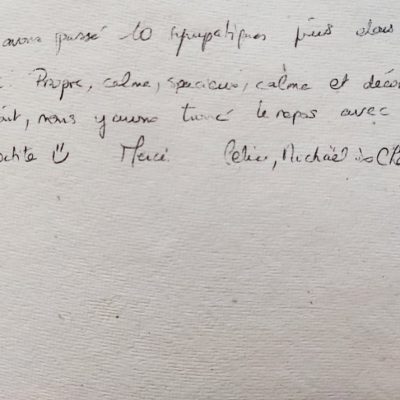 avons passé 10 sympatiques jours dans
Propre, calme, spacieux, calme et décor
ait, nous y avons trouvé le repos avec
Merci Celine, Michaël